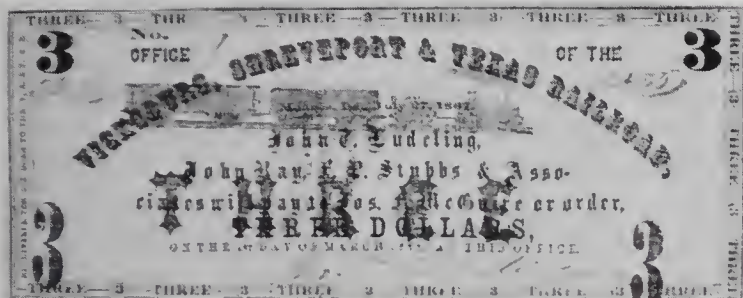 THREE 3 THR 3 THREE 3 THREE 3 THREE 3 THREE
3 3
No.
OFFICE OF THE
VICKSBURG, SHREVEPORT & TEXAS RAILROAD,
July 27, 1867
John T. Ludeling,
John Ray, F. P. Stubbs & Asso-
ciates will pay to Jos. McGuire or order,
THREE
THREE DOLLARS,
ON THE DAY OF MARCH THIS OFFICE
3 3
THREE 3 THREE 3 THREE 3 THREE 3 THREE 3 THREE